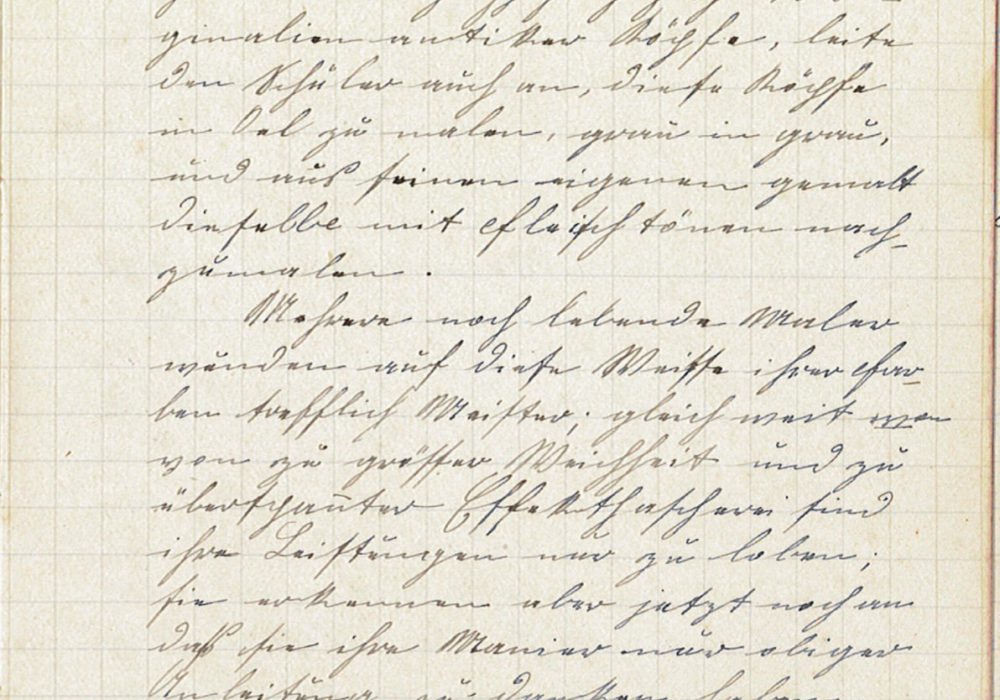 ginalien antiker Köpfe, leite
den Schüler auch an, diese Köpfe
in Oel zu malen, grau in grau,
und aus seinen eigenen gemalt
dieselbe mit Fleischtönen nach-
zumalen.
Mehrere noch lebende Maler
wurden auf diese Weisse ihrer Far-
ben trefflich Meister; gleich weit
von zu grosser Weichheit und zu
überspan̄ter Effekthascherei sind
ihre Leistungen nur zu loben;
sie erkennen aber jetzt noch an
daß sie ihre Manier nur obiger
Anleitung zu danken haben